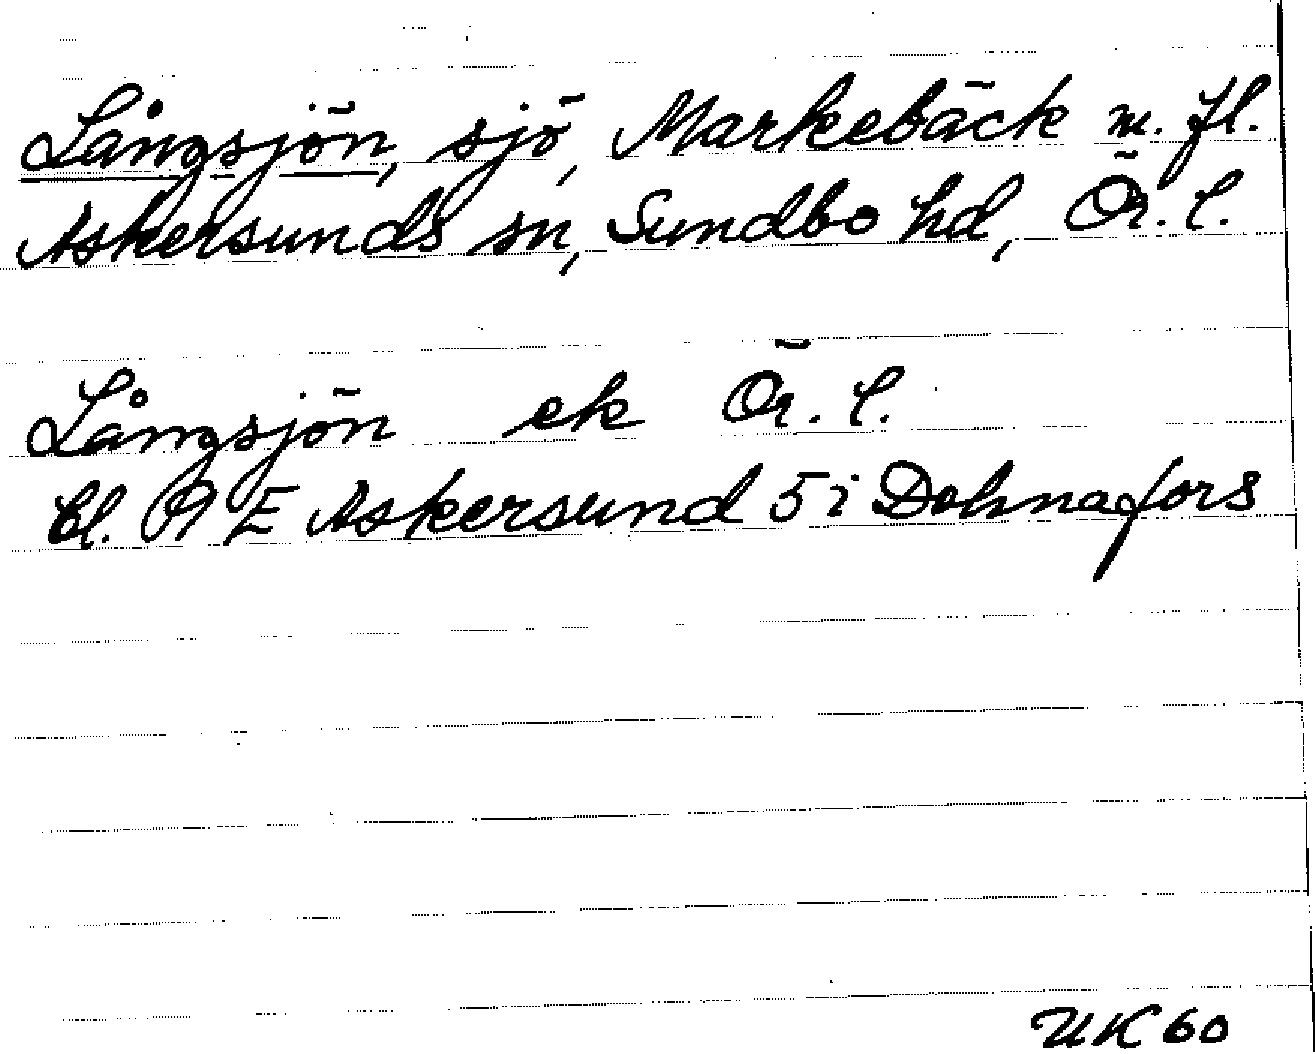 Långsjön, sjö, Markebäck m. fl.
Askersunds sn, Sundbo hd, Ör. l.
Långsjön ek Ör. l.
Bl. Askersund 5 i Dohnafors
UK 60